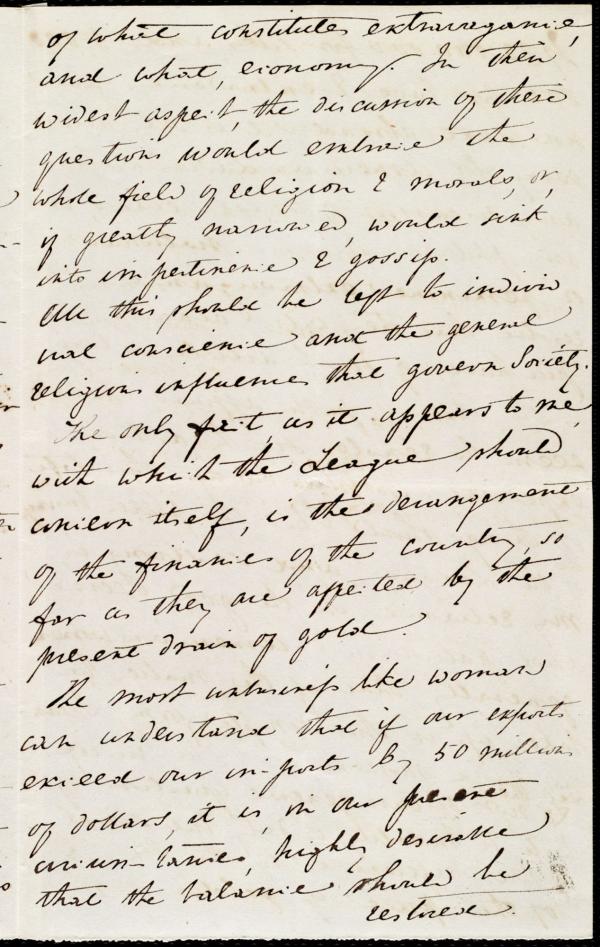 of what constitutes extravagance,
and what, economy. In their
widest aspect, the discussion of these
questions would embrace the
whole field of religion & morals, or,
if greatly narrowed, would sink
into impertinence & gossip.
All this should be left to individ
ual conscience and the general
religious influences that govern Society.
The only fact, as it appears to me,
with which the League should
concern itself, is the derangement
of the finances of the country, so
far as they are affected by the
present drain of gold.
The most unbusiness like woman
can understand that if our exports
exceed our imports by 50 millions
of dollars, it is, in our present
circumstances, highly desirable
that the balance should be
restored.